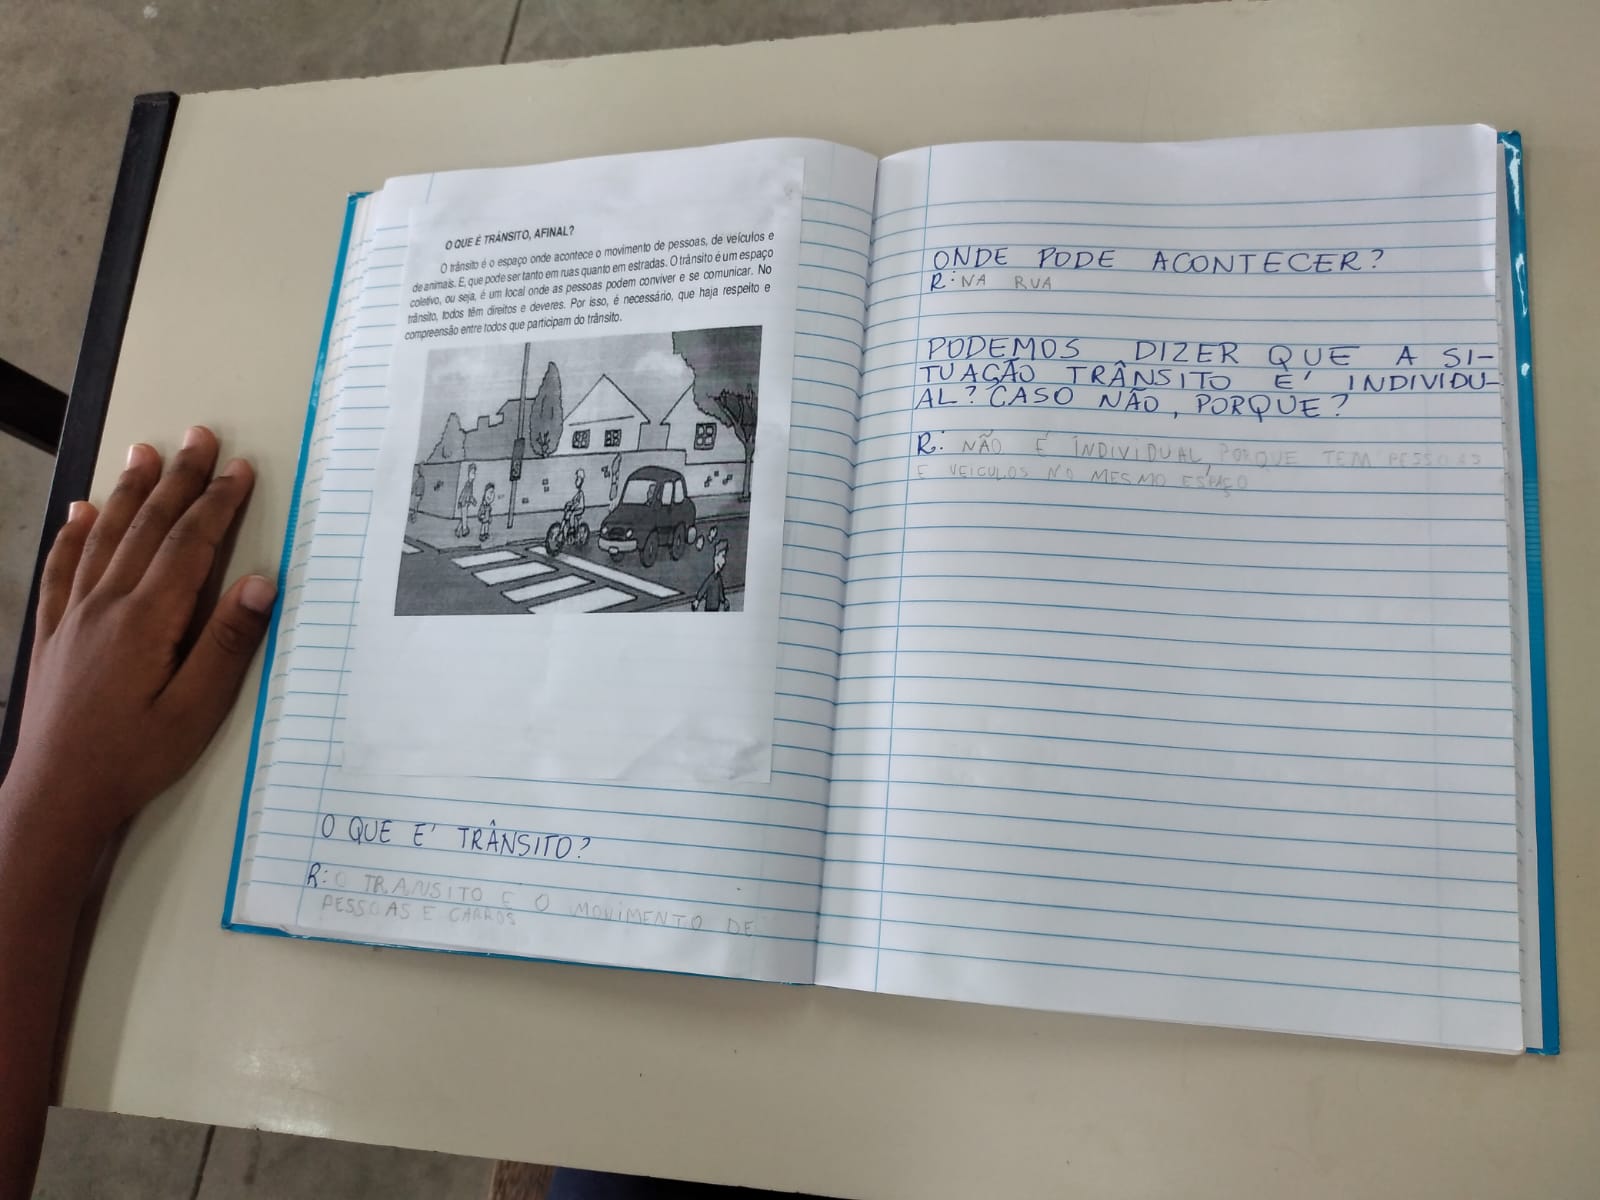 O QUE É TRÂNSITO, AFINAL?
O trânsito é o espaço onde acontece o movimento de pessoas, de veículos e
de animais. E, que pode ser tanto em ruas quanto em estradas. O trânsito é um espaço
coletivo, ou seja, é um local onde as pessoas podem conviver e se comunicar. No
trânsito, todos têm direitos e deveres. Por isso, é necessário, que haja respeito e
compreensão entre todos que participam do trânsito.
O QUE É TRÂNSITO?
R: O TRANSITO E O MOVIMENTO DE
PESSOAS E CARROS
ONDE PODE ACONTECER?
R: NA RUA
PODEMOS DIZER QUE A SI-
TUAÇÃO TRÂNSITO É INDIVIDU-
AL? CASO NÃO, PORQUE?
R: NÃO É INDIVIDUAL, PORQUE TEM PESSOAS
E VEICULOS NO MESMO ESPAÇO